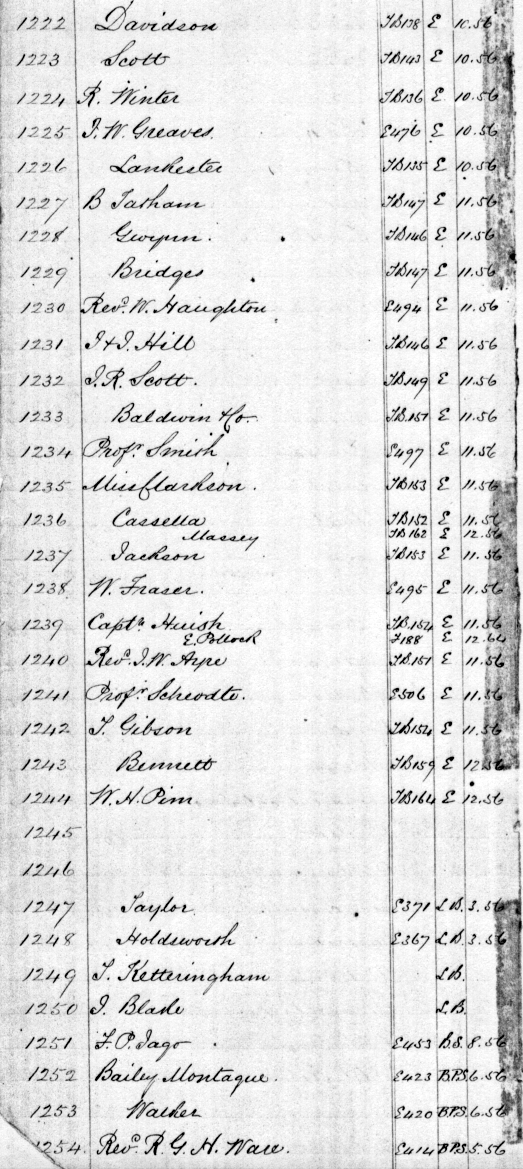 1222 Davidson TB138 E 10.56
1223 Scott TB143 E 10.56
1224 R. Winter TB136 E 10.56
1225 J. W. Greaves. E476 E 10.56
1226 Lankester TB135 E 10.56
1227 B Tatham TB147 E 11.56
1228 Gwynn. TB146 E 11.56
1229 Bridges TB147 E 11.56
1230 Revd. W. Haughton E494 E 11.56
1231 J & J. Hill TB146 E 11.56
1232 J. R. Scott. TB149 E 11.56
1233 Baldwin & Co. TB.151 E 11.56
1234 Profr. Smith E497 E 11.56
1235 Miss Clarkson. TB153 E 11.56
1236 Cassella TB152 E 11.56
Massey TB162 E 12.56
1237 Jackson TB153 E 11.56
1238 W. Fraser. E495 E 11.56
1239 Captn Huish TB.154 E 11.56
E. Pollock F188 E 12.64
1240 Revd. J. W. Ayre TB.151 E 11.56
1241 Profr. Schiodte. E506 E 11.56
1242 T. Gibson TB154 E 11.56
1243 Bennett TB159 E 12.56
1244 W. H. Pim TB164 E 12.56
1245
1246
1247 Taylor E371 L.B. 3.56
1248 Holdsworth E367 L.B. 3.56
1249 T. Ketteringham L.B.
1250 J. Blade L.B.
1251 F. P. Jago E453 B.S. 8.56
1252 Bailey Montague. E423 B.P.S. 6.56
1253 Walker E420 B.P.S. 6.56
1254. Revd. R. G. H. Ware. E414 B.P.S. 5.56